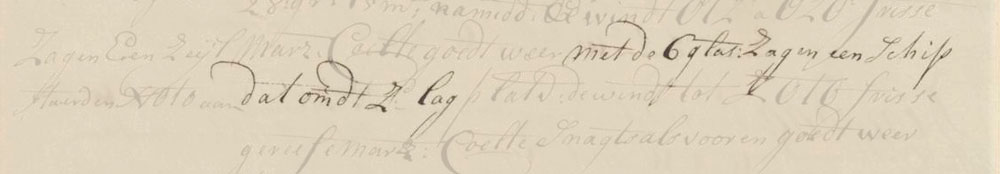 28: gr: 15 m; namidd: de windt OtZ a OZO frisse
Zagen Een Zeijl Marz: Coelte goedt weer met de 6 glas: Zagen een Schip
stuerden aan dat omdt Z: lag plat: de windt tot ZOtO frisse
gereefe Marz: Coelte Snagts als vooren goedt weer